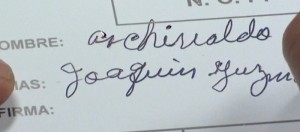 OMBRE: archivaldo
MAS: Joaquin Guzm
FIRMA: